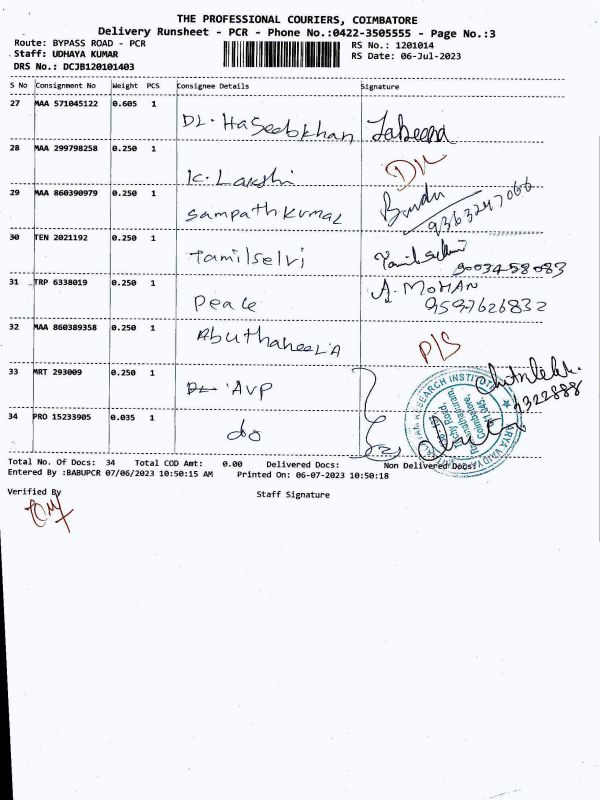 THE PROFESSIONAL COURIERS, COIMBATORE
Delivery Runsheet - PCR - Phone No.:0422-3505555 - Page No.:3
Route: BYPASS ROAD - PCR
Staff: UDHAYA KUMAR
DRS No.: DCJB120101403
RS No.: 1201014
RS Date: 06-Jul-2023
S No Consignment No Weight PCS Consignee Details Signature
27 MAA 571045122 0.605 1
DL. Haseebkhan
28 MAA 299798258 0.250 1
K. Lakshi
29 MAA 860390979 0.250 1
Sampathkumar 9363247066
30 TEN 2021192 0.250 1
Tamilselvi 9003458083
31 TRP 6338019 0.250 1 A. MOHAN
Peace 9597626832
32 MAA 860389358 0.250 1
P/S
33 MRT 293009 0.250 1
AVP
34 PRO 15233905 0.035 1
do
RESEARCH INSTITUTE
Coimbatore,
Total No. Of Docs: 34 Total COD Amt: 0.00 Delivered Docs: Non Delivered Docs:
Entered By :BABUPCR 07/06/2023 10:50:15 AM Printed On: 06-07-2023 10:50:18
Verified By
Staff Signature